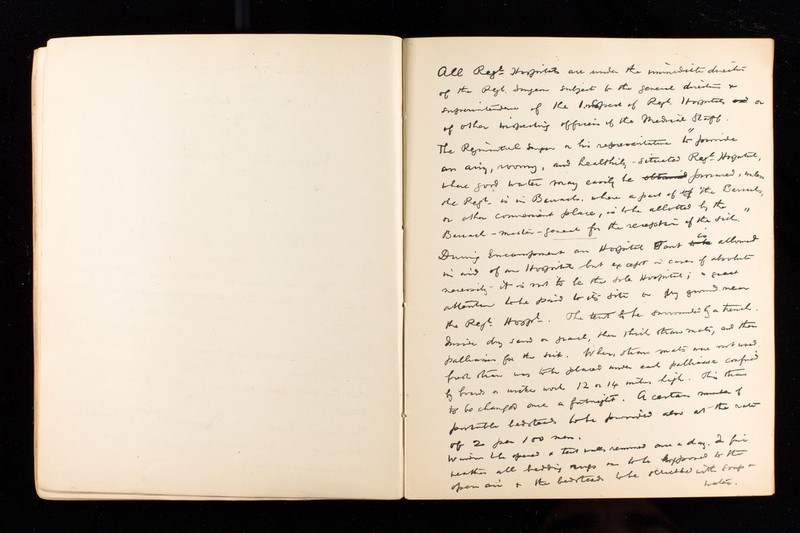 All Regtl Hospitals are under the immediate direction
of the Regtl Surgeon subject to the general direction &
superintendence of the Inspect of Regtl Hospitals or
of other inspecting officers of the Medical Staff.
The Regimental Surgeon or his representative "to provide
an airy, roomy, and healthily-situated Regtl Hospital,
where good water may easily be procured, unless
the Regt is in Barracks, where a part of the Barracks,
or other convenient place, is to be allotted by the
Barrack-master-general for the reception of the sick"
During Encampment an Hospital Tent is allowed
in aid of an Hospital but except in cases of absolute
necessity it is not to be the sole Hospital; & great
attention to be paid to its site on dry ground near
the Regtl Hospl. The tent to be surrounded by a trench.
Inside dry sand or gravel, then thick straw mats, and then
palliasses for the sick. When straw mats were not used
fresh straw was to be placed under each palliasse confined
by boards or wicker work 12 or 14 inches high. This straw
to be changed once a fortnight. A certain number of
portable bedsteads to be provided also at the rate
of 2 per 100 men.
Windows to be opened & tent walls removed once a day. In fine
weather all bedding rugs are to be exposed to the
open air & the bedsteads to be scrubbed with soap &
water.